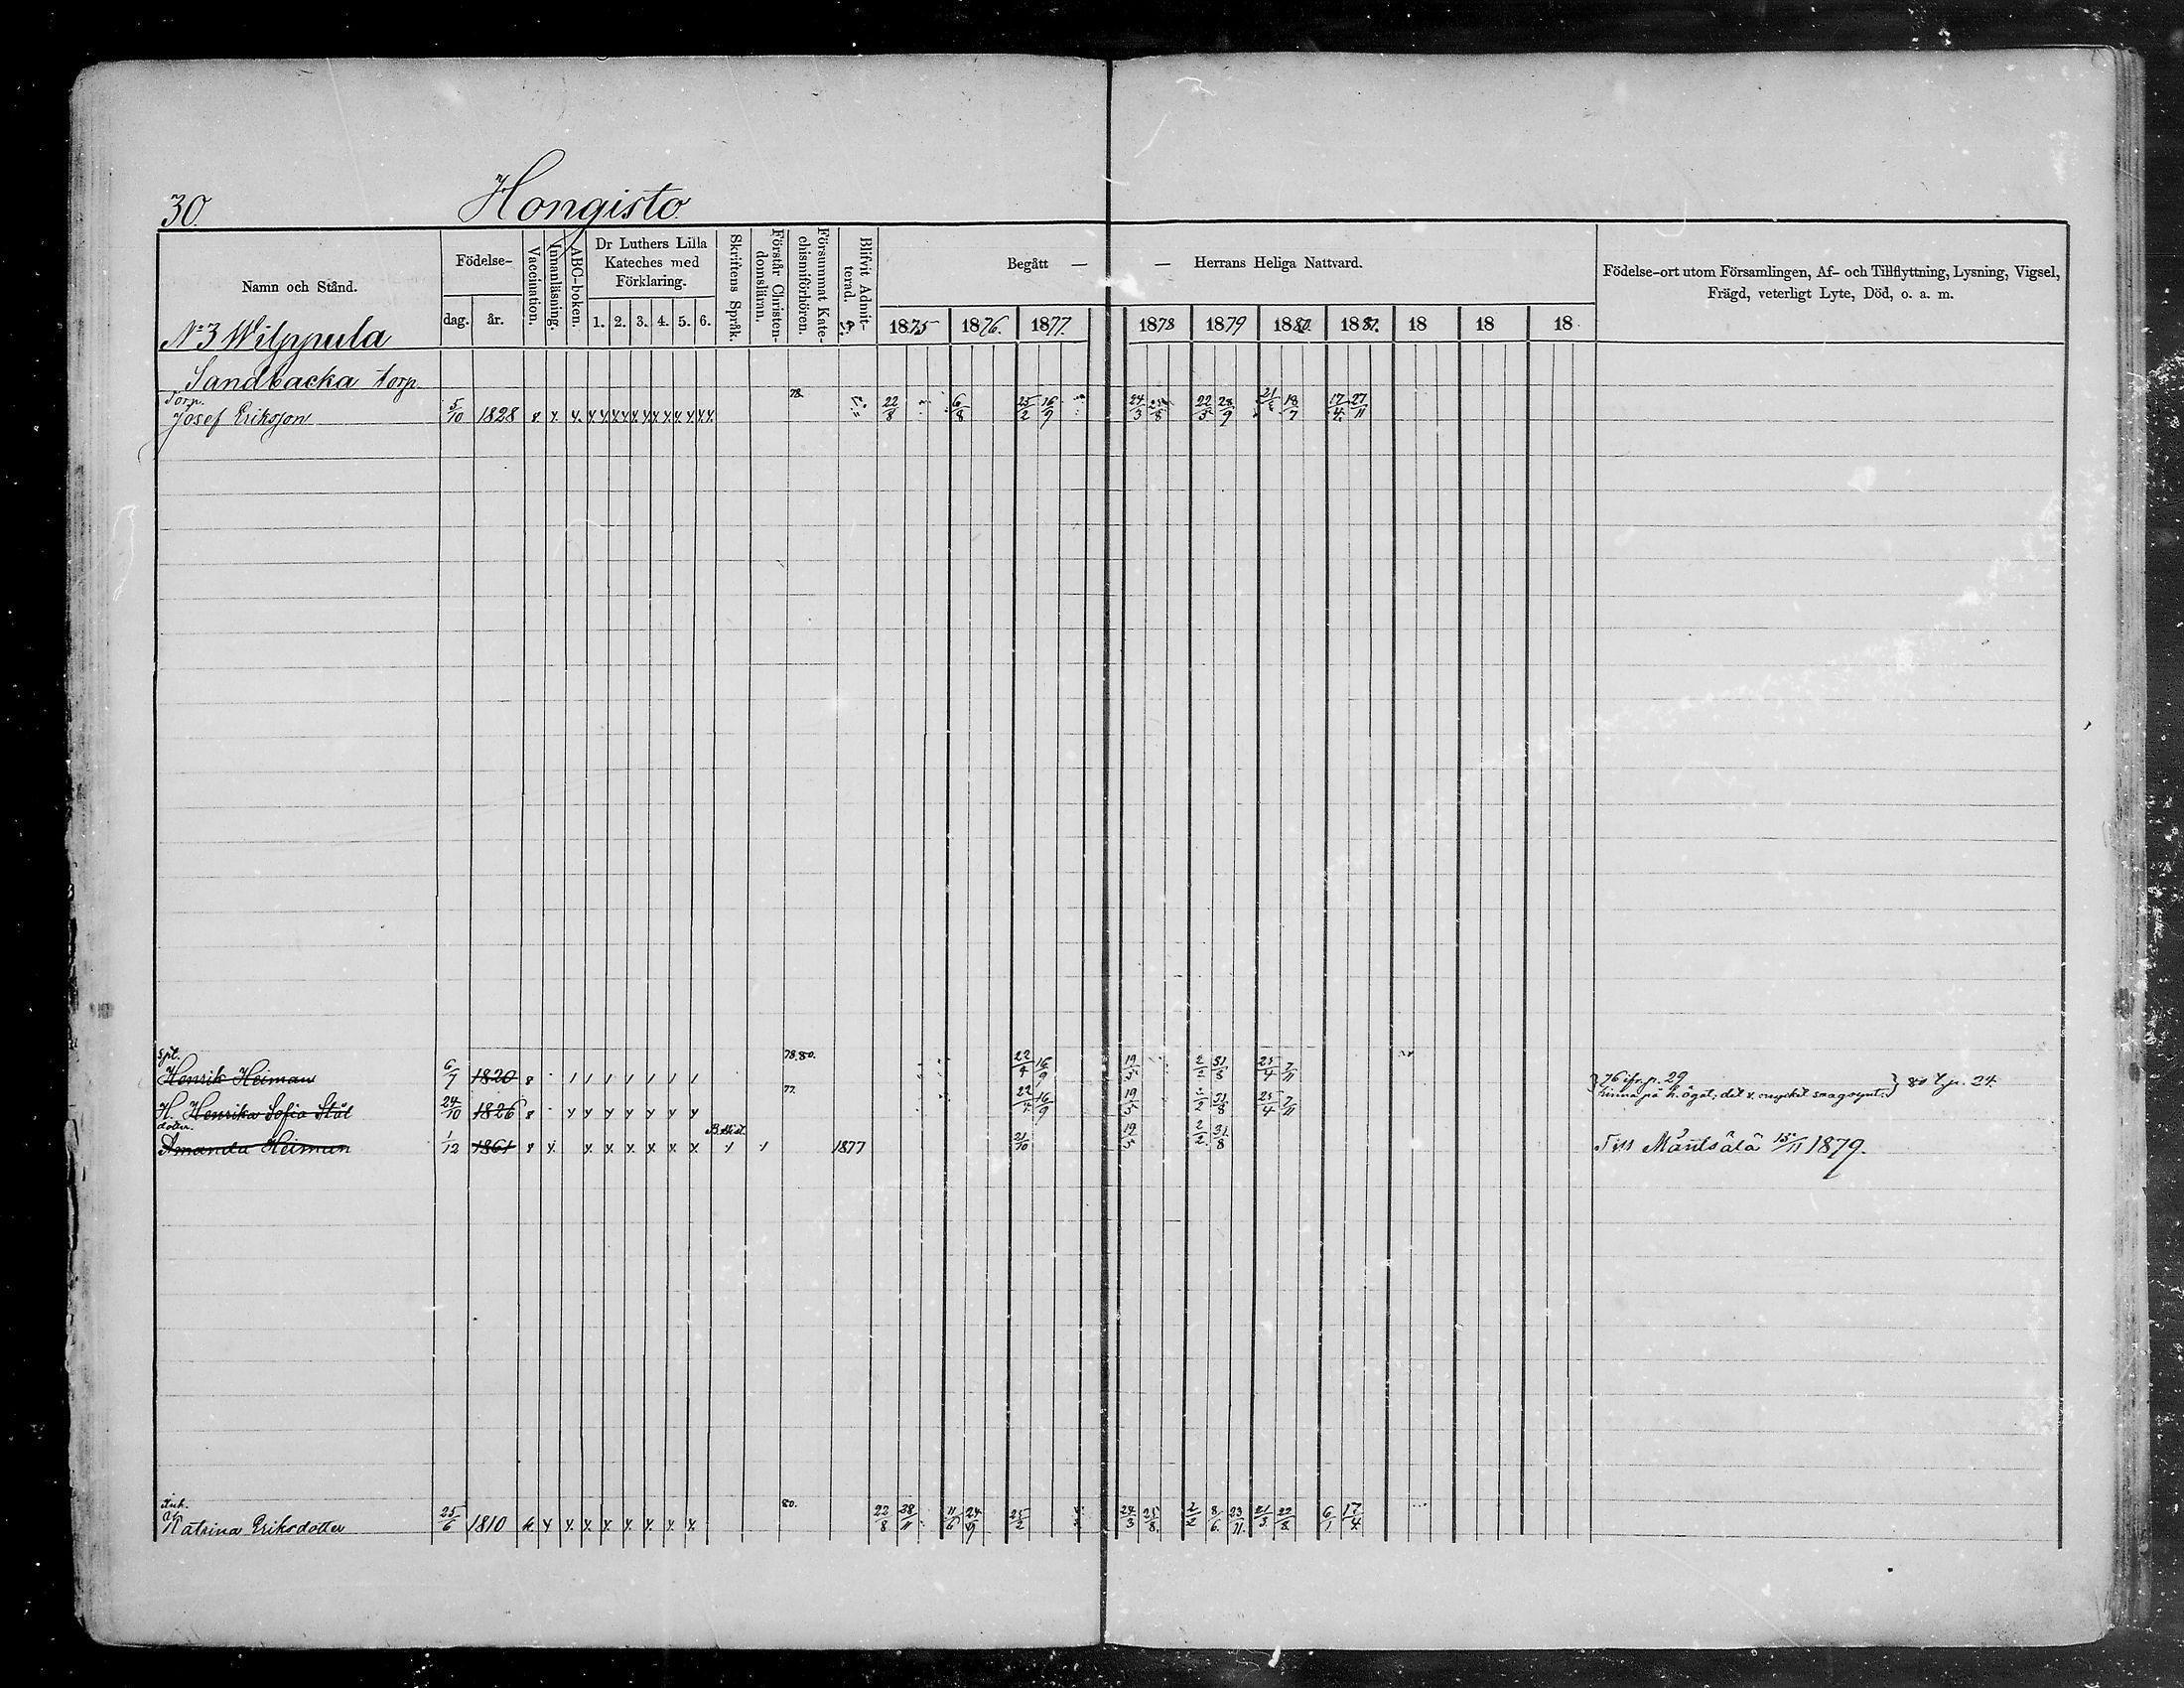 30.
Hongisto
Namn och Stånd.
Födelse-
dag. år.
Vaccination.
Innanläsning.
ABC-boken.
Dr Luthers Lilla
Kateches med
Förklaring.
1. 2. 3. 4. 5. 6.
Skriftens Språk.
Förstår Christen-
domsläran.
Försummat Kate-
chismiförhören.
Blifvit Admit-
terad.
Begått — — Herrans Heliga Nattvard.
1875 1876. 1877. 1878 1879 1880. 1881. 18 18 18
Födelse-ort utom Församlingen, Af- och Tillflyttning, Lysning, Vigsel,
Frägd, veterligt Lyte, Död, o. a. m.
No 3 Wilppula
Sandbacka torp.
Torp.
Josef Eriksson 5/10 1828 78. 22/8 6/8 25/2 16/9 24/3 25/8 22/5 28/9 18/7 17/4 27/11
Spl.
Henrik Heiman 6/7 1820 78. 80. 22/4 16/9 19/5 2/2 31/8 25/4 7/11
76 ifr. p. 29
H. Henrika Sofia Stål 24/10 1826 77. 22/4 16/9 19/5 2/2 31/8 25/4 7/11
hinna på h. ögat, det v. mycket svagsynt. 80 t. p. 24.
dotter.
Amanda Heiman 1/12 1861 1877 21/10 19/5 2/2 31/8 Till Mäntsälä 15/11 1879.
Enk.
Katrina Eriksdotter 25/6 1810 80. 22/8 28/11 11/6 24/9 25/2 24/3 25/8 2/2 8/6 23/11 21/3 22/8 6/1 17/4